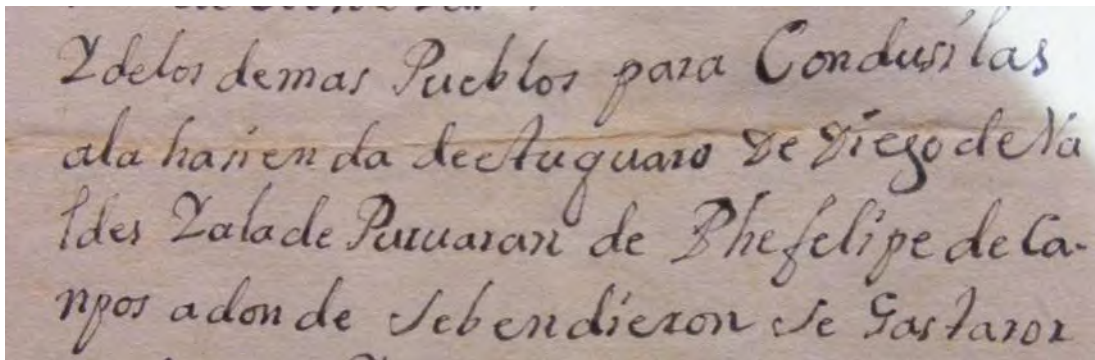 Y delos demas Pueblos para Condusilas
ala hasienda de Auguaro De Diego de Va
ldes Y ala de Puruaran de Phefelipe de Ca-
npos adonde se bendieron se Gastaron